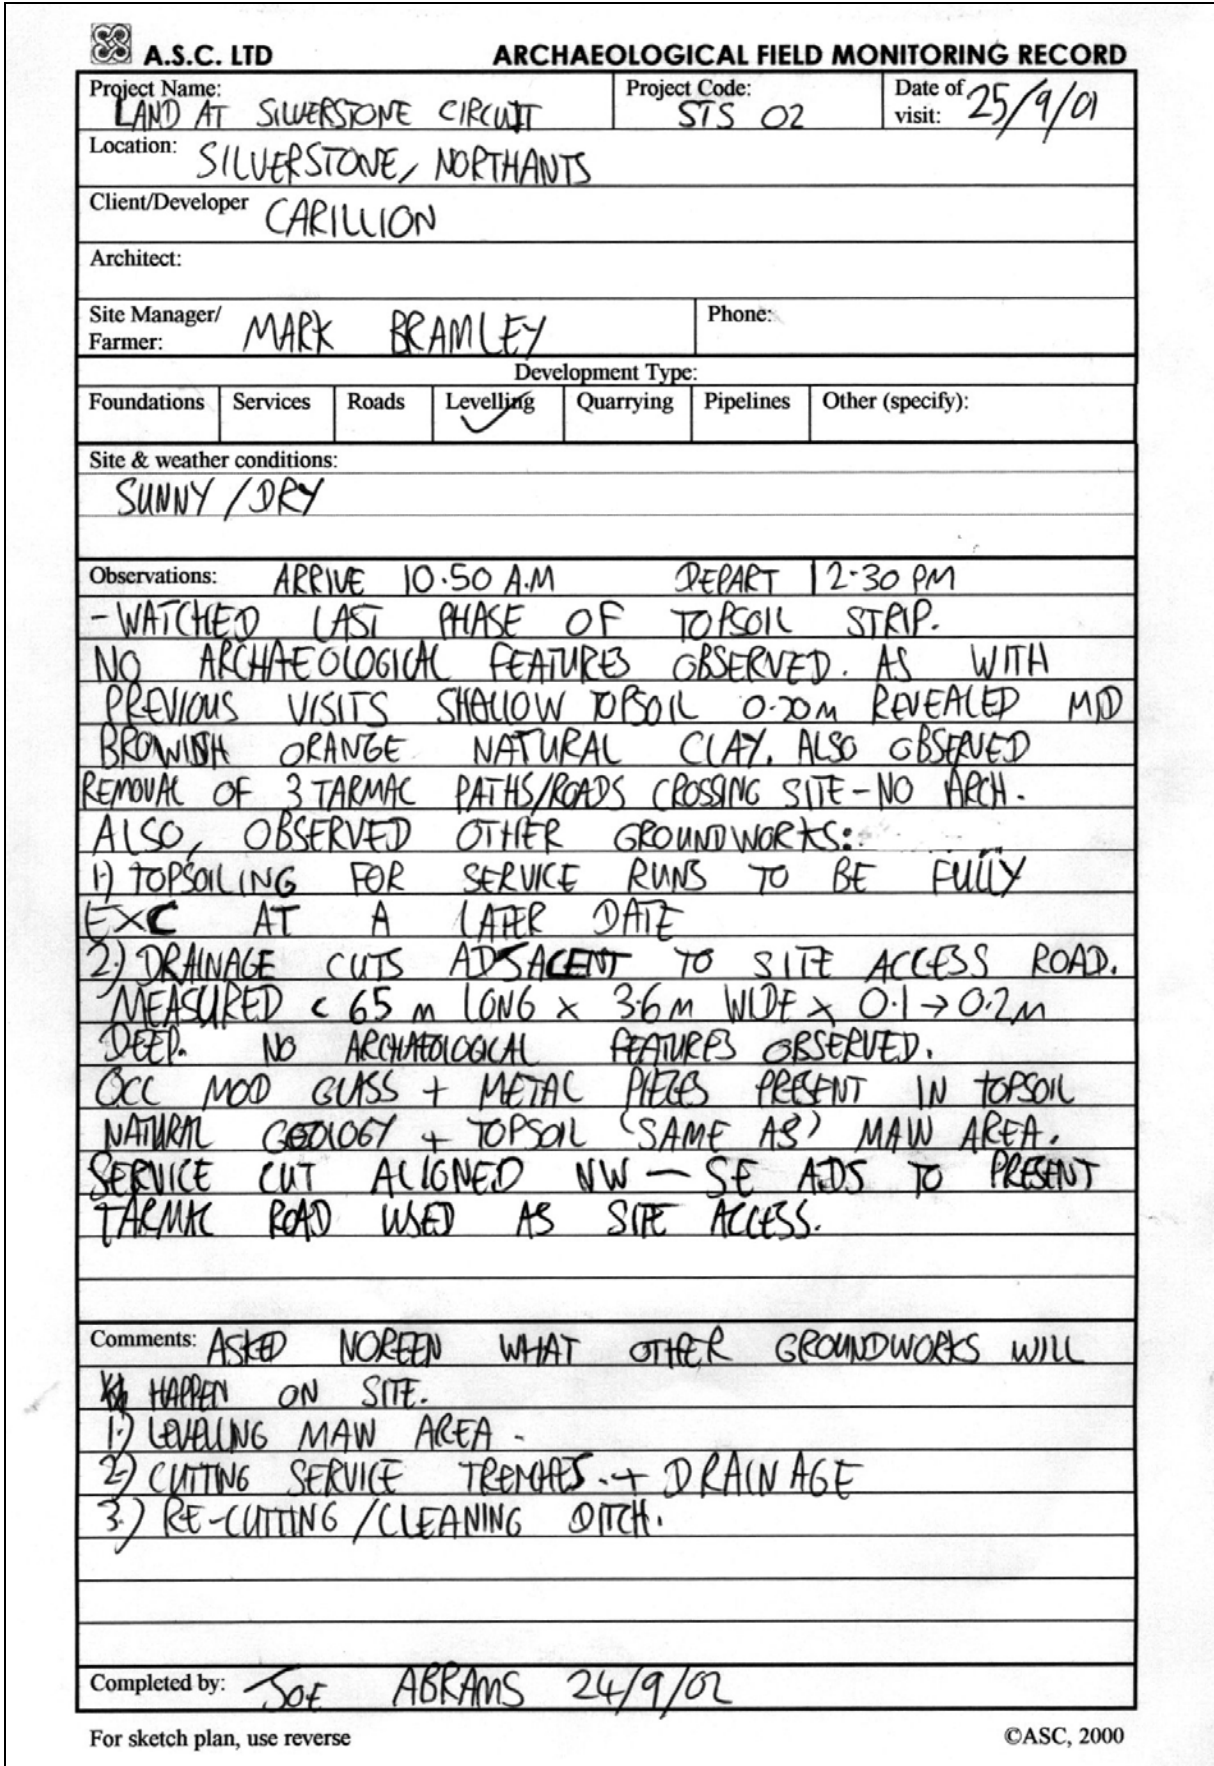 A.S.C. LTD ARCHAEOLOGICAL FIELD MONITORING RECORD
Project Name: LAND AT SILVERSTONE CIRCUIT Project Code: STS 02 Date of visit: 25/9/01
Location: SILVERSTONE, NORTHANTS
Client/Developer CARILLION
Architect:
Site Manager/ Farmer: MARK BRAMLEY Phone:
Development Type:
Foundations Services Roads Levelling ✓ Quarrying Pipelines Other (specify):
Site & weather conditions:
SUNNY / DRY
Observations: ARRIVE 10.50 A.M DEPART 12.30 PM
- WATCHED LAST PHASE OF TOPSOIL STRIP.
NO ARCHAEOLOGICAL FEATURES OBSERVED. AS WITH
PREVIOUS VISITS SHALLOW TOPSOIL 0.20m REVEALED MID
BROWNISH ORANGE NATURAL CLAY. ALSO OBSERVED
REMOVAL OF 3 TARMAC PATHS/ROADS CROSSING SITE - NO ARCH.
ALSO, OBSERVED OTHER GROUNDWORKS:
1) TOPSOILING FOR SERVICE RUNS TO BE FULLY
EXC AT A LATER DATE
2) DRAINAGE CUTS ADJACENT TO SITE ACCESS ROAD.
MEASURED < 65 m LONG x 3.6m WIDE x 0.1 → 0.2m
DEEP. NO ARCHAEOLOGICAL FEATURES OBSERVED.
OCC MOD GLASS + METAL PIECES PRESENT IN TOPSOIL
NATURAL GEOLOGY + TOPSOIL (SAME AS) MAIN AREA.
SERVICE CUT ALIGNED NW - SE ADJ TO PRESENT
TARMAC ROAD USED AS SITE ACCESS.
Comments: ASKED NOREEN WHAT OTHER GROUNDWORKS WILL
HAPPEN ON SITE.
1.) LEVELLING MAIN AREA -
2.) CUTTING SERVICE TRENCHES. + DRAINAGE
3.) RE-CUTTING / CLEANING DITCH.
Completed by: JOE ABRAMS 24/9/02
For sketch plan, use reverse ©ASC, 2000